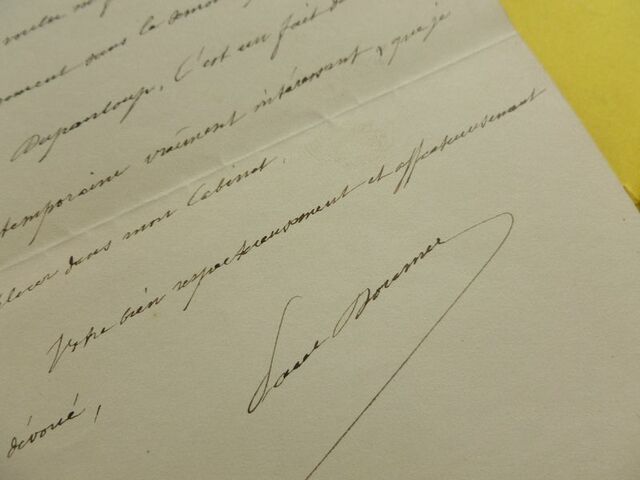 dans le
Dupanloup. C'est un fait de
temporaine vraiment intéressant & que je
dans mon Cabinet.
Votre bien respectueusement et affectueusement
dévoué,
Paul Doumer